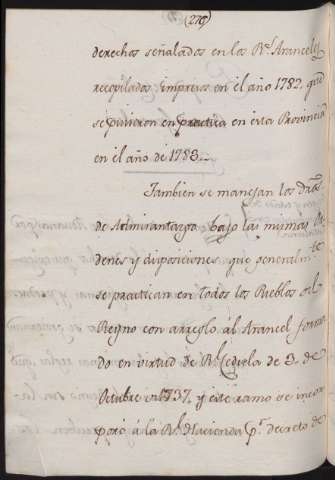 (278)
derechos señalados en los Rs. Aranceles
recopilados impresos en el año 1782. que
se pusieron en practica en esta Provincia
en el año de 1783..
Tambien se manejan los dros.
de Almirantazgo bajo las mismas Or
denes y disposiciones que generalmte.
se practican en todos los Pueblos del
Reyno con arreglo al Arancel forma
do en virtud de Rl. Cedula de 3. de
Octubre de 1737. y este ramo se incor
poró á la Rl. Hacienda pr. decreto de